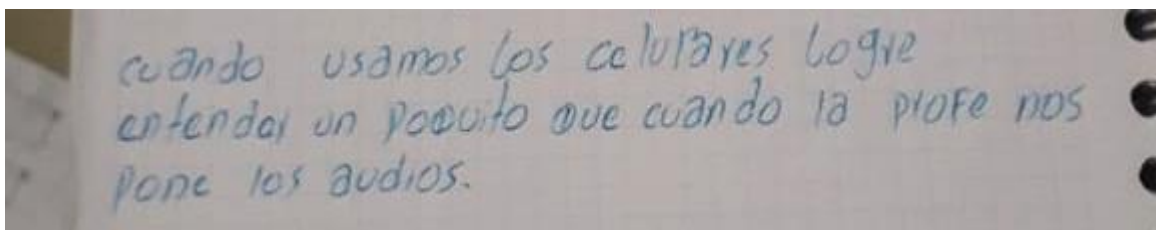 cuando usamos los celulares logre
entender un poquito que cuando la profe nos
pone los audios.